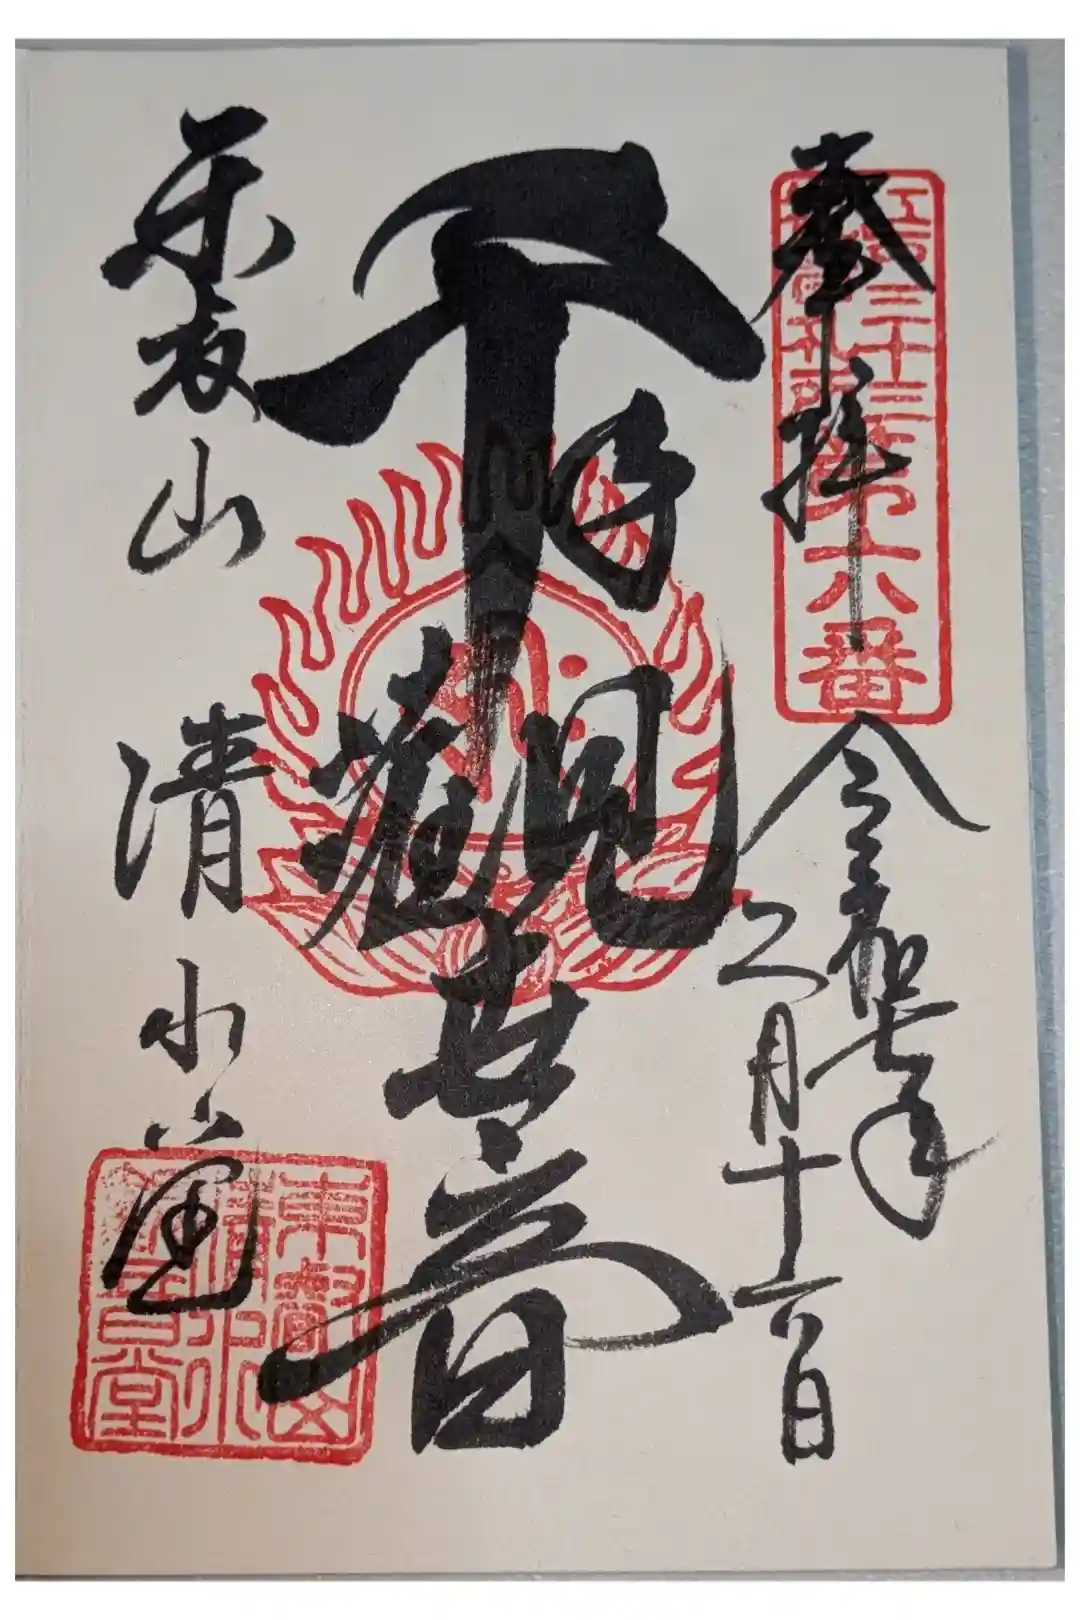 奉拝
江戸三十三
観音札所第六番
令和七年
二月十六日
千手
観世音
東叡山
清水堂
東叡山
清水
観音堂